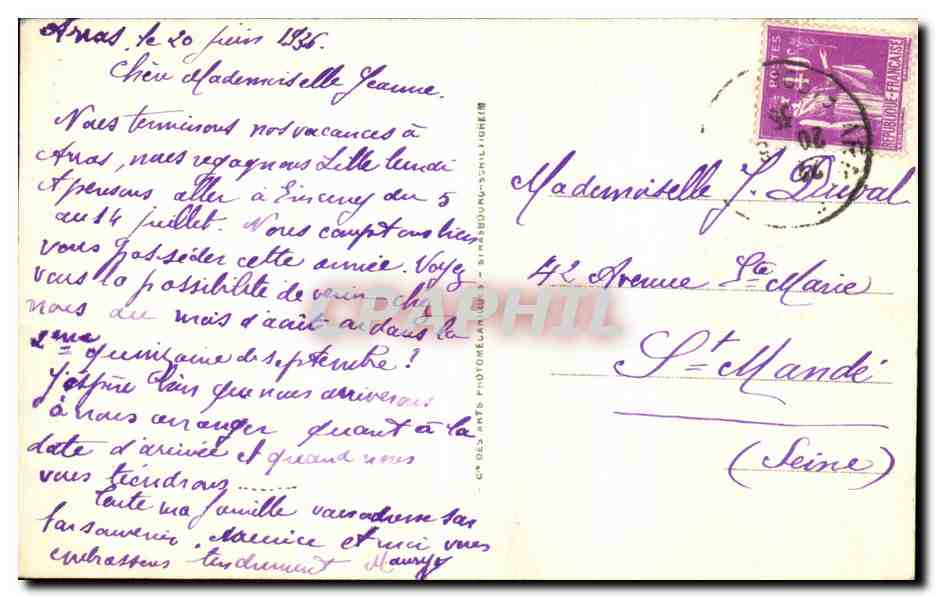 Arras, le 20 juin 1936.
Chère Mademoiselle Jeanne.
Nous terminons nos vacances à
Arras, nous regagnons Lille lundi
& pensons aller à du 5
au 14 juillet. Nous comptons bien
vous posséder cette année. Voyez
vous la possibilité de venir chez
nous du mois d'août ou dans la
2ème quinzaine de septembre?
J'espère bien que nous arriverons
à nous arranger quant à la
date d'arrivée et quand nous
vous tiendrons.......
Toute ma famille vous adresse son
bon souvenir. Maurice et moi vous
embrassons tendrement
Cie DES ARTS PHOTOMECANIQUES - STRASBOURG-SCHILTIGHEIM
POSTES
40c
REPUBLIQUE FRANÇAISE
20
36
Mademoiselle J. Duval
42 Avenue Ste Marie
St Mandé
(Seine)
CPAPHIL